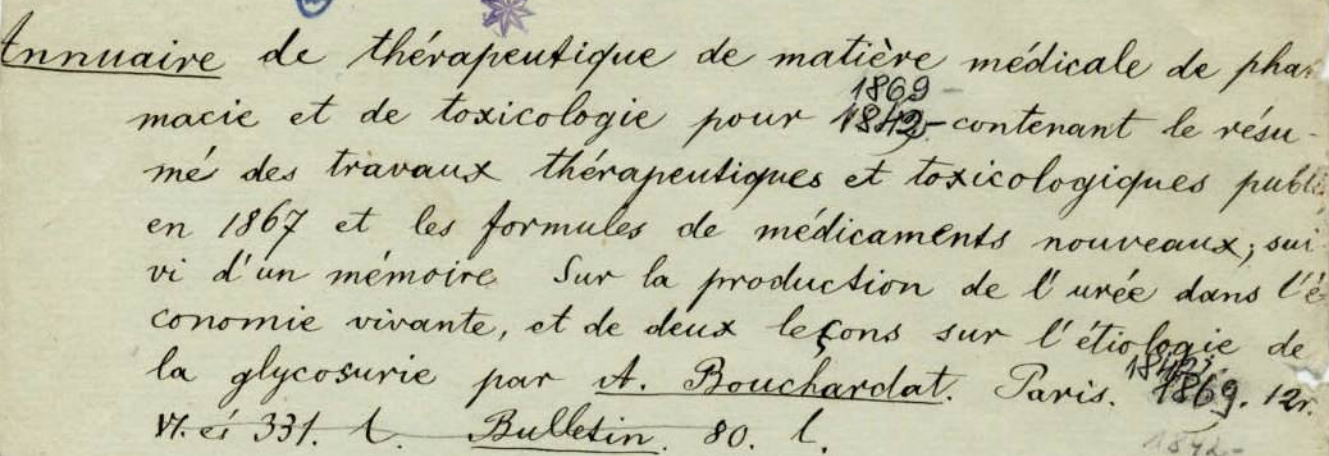 Annuaire de thérapeutique de matière médicale de phar
1869-
macie et de toxicologie pour 1842- contenant le résu-
mé des travaux thérapeutiques et toxicologiques publi
en 1867 et les formules de médicaments nouveaux; sui
vi d'un mémoire Sur la production de l'urée dans l'é
conomie vivante, et de deux leçons sur l'étiologie de
la glycosurie par A. Bouchardat. Paris. 1869. 12r.
VI. és 331. l. Bulletin. 80. l.
1842-